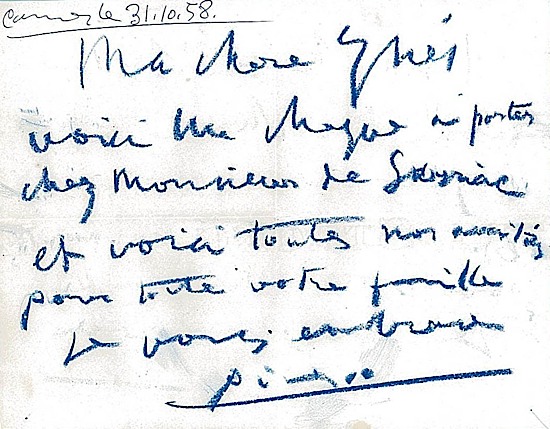 Cannes le 31.10.58.
Ma chere Ynès
voici un cheque a porter
chez Monsieur de
et voici toutes nos amitiés
pour toute votre famille
Je vous embrasse
Picasso